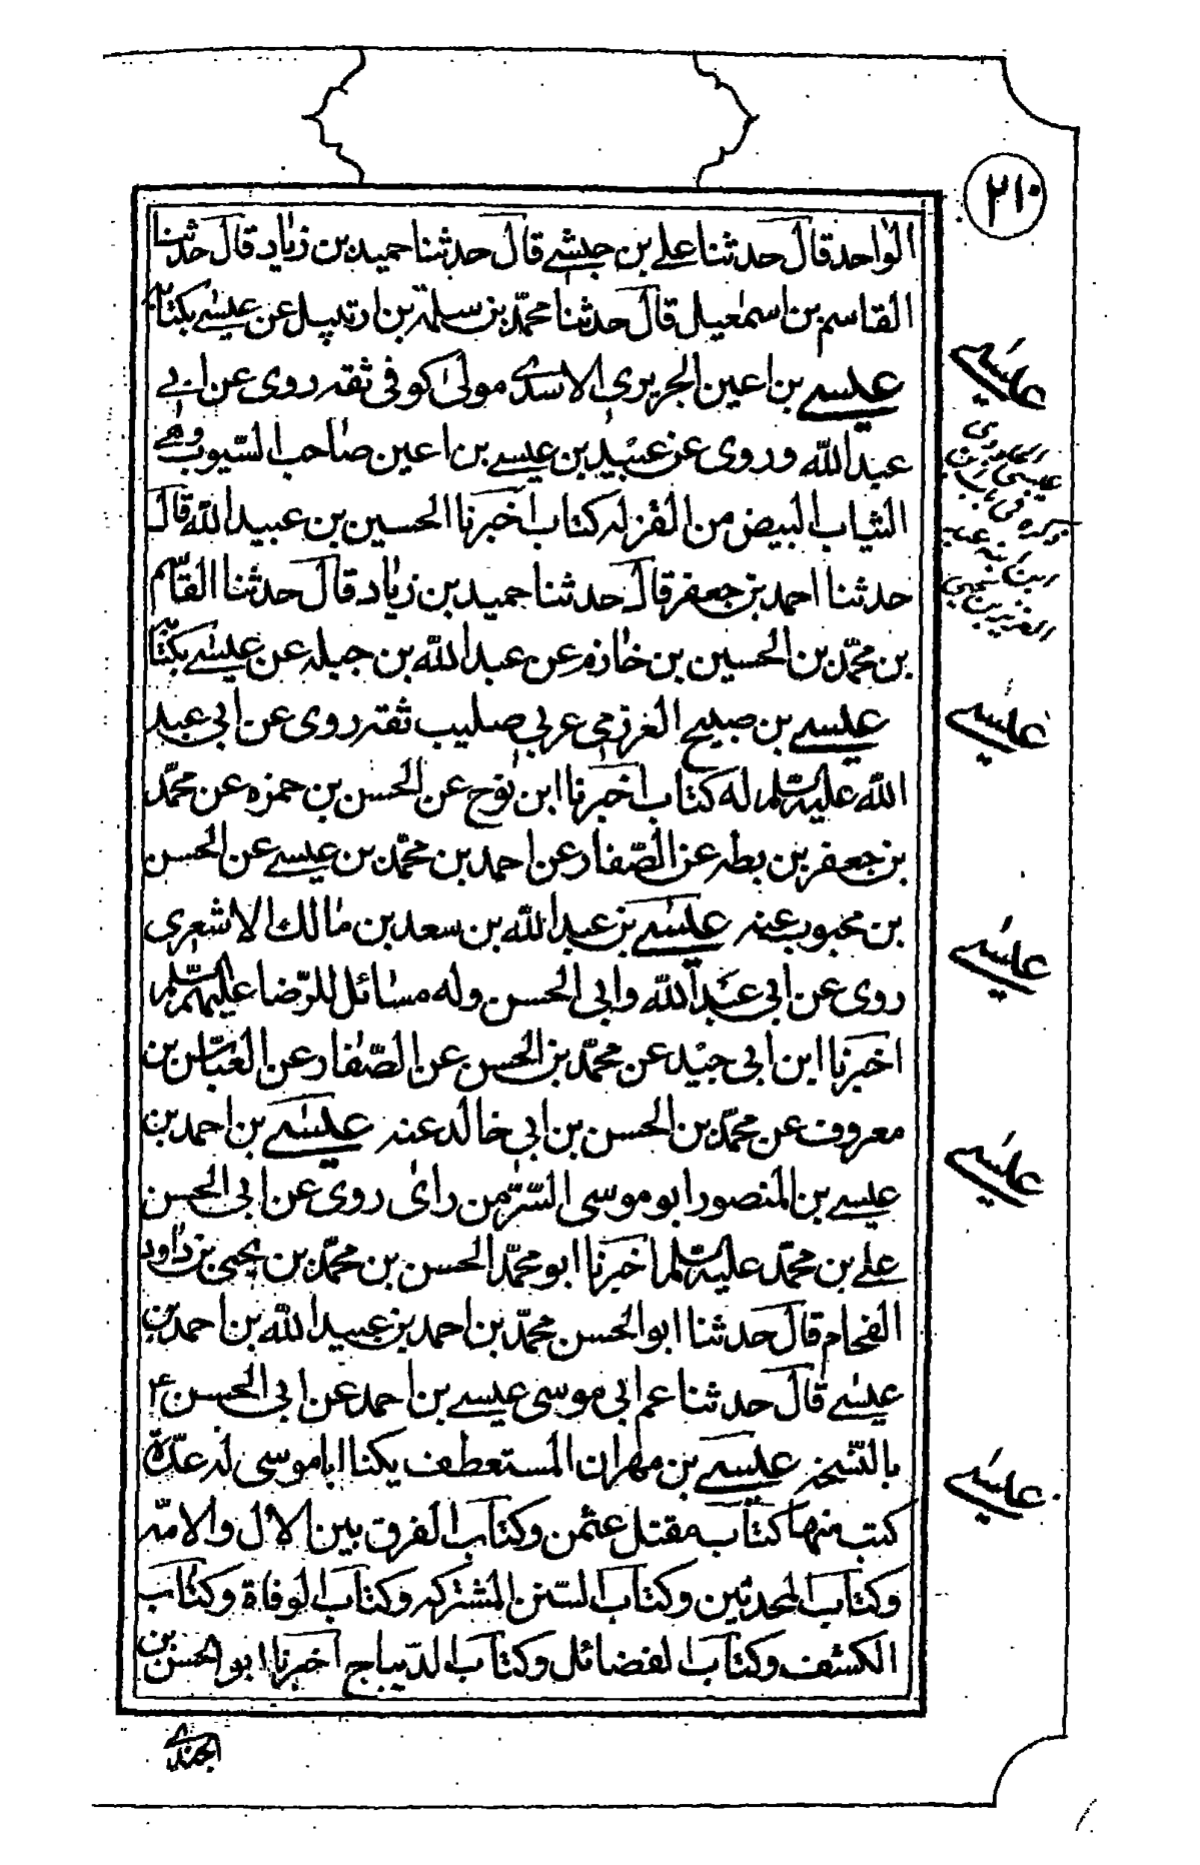 ٢١٠
الواحد قال حدثنا علي بن حبشي قال حدثنا حميد بن زياد قال حدثنا
القاسم بن اسمعيل قال حدثنا محمّد بن سلمة بن ارتبيل عن عيسى بكتابه
عيسى بن اعين الجريري الاسدي مولى كوفي ثقه روى عن ابي
عبد الله وروى عن عبيد بن عيسى بن اعين صاحب السيوب وهي
الثياب البيض من القز له كتاب اخبرنا الحسين بن عبيد الله قال
حدثنا احمد بن جعفر قال حدثنا حميد بن زياد قال حدثنا القاسم
بن محمّد بن الحسين بن خازم عن عبد الله بن جبله عن عيسى بكتابه
عيسى بن صبيح العرزمي عربي صليب ثقه روى عن ابي عبد
الله عليه السّلم له كتاب اخبرنا ابن نوح عن الحسن بن حمزه عن محمّد
بن جعفر بن بطه عن الصّفار عن احمد بن محمّد بن عيسى عن الحسن
بن محبوب عنه عيسى بن عبد الله بن سعد بن مالك الاشعري
روى عن ابي عبد الله وابي الحسن وله مسائل للرّضا عليهم السّلم
اخبرنا ابن ابي جيد عن محمّد بن الحسن عن الصّفار عن العباس بن
معروف عن محمّد بن الحسن بن ابي خالد عنه عيسى بن احمد بن
عيسى بن المنصور ابو موسى السّرّ من راى روى عن ابي الحسن
علي بن محمّد عليه السّلم اخبرنا ابو محمّد الحسن بن محمّد بن يحيى بن داود
الفحام قال حدثنا ابو الحسن محمّد بن احمد بن عبيد الله بن احمد بن
عيسى قال حدثنا عم ابي موسى عيسى بن احمد عن ابي الحسن ع
بالنّسخه عيسى بن مهران المستعطف يكنا ابا موسى له عدّة
كتب منها كتاب مقتل عثمن وكتاب الفرق بين الال والامّه
وكتاب المحدثين وكتاب السّنن المشتركه وكتاب الوفاة وكتاب
الكشف وكتاب الفضائل وكتاب الدّيباج اخبرنا ابو الحسن بن
عيسى
عيسى
عيسى
عيسى
عيسى
الجندي